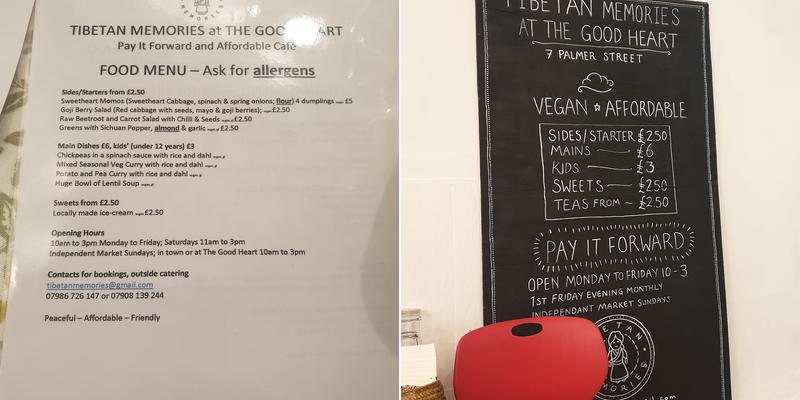 MEMORIES
TIBETAN MEMORIES at THE GOOD HEART
Pay It Forward and Affordable Café
FOOD MENU – Ask for allergens
Sides/Starters from £2.50
Sweetheart Momos (Sweetheart Cabbage, spinach & spring onions; flour) 4 dumplings £5
Goji Berry Salad (Red cabbage with seeds, mayo & goji berries); £2.50
Raw Beetroot and Carrot Salad with Chilli & Seeds £2.50
Greens with Sichuan Pepper, almond & garlic £2.50
Main Dishes £6, kids' (under 12 years) £3
Chickpeas in a spinach sauce with rice and dahl
Mixed Seasonal Veg Curry with rice and dahl
Potato and Pea Curry with rice and dahl
Huge Bowl of Lentil Soup
Sweets from £2.50
Locally made ice-cream £2.50
Opening Hours
10am to 3pm Monday to Friday; Saturdays 11am to 3pm
Independent Market Sundays; in town or at The Good Heart 10am to 3pm
Contacts for bookings, outside catering
tibetanmemories@gmail.com
07986 726 147 or 07908 139 244
Peaceful – Affordable – Friendly
TIBETAN MEMORIES
AT THE GOOD HEART
7 PALMER STREET
VEGAN ☆ AFFORDABLE
SIDES/STARTER £2.50
MAINS £6
KIDS £3
SWEETS £2.50
TEAS FROM £2.50
PAY IT FORWARD
OPEN MONDAY TO FRIDAY 10-3
1ST FRIDAY EVENING MONTHLY
INDEPENDANT MARKET SUNDAYS